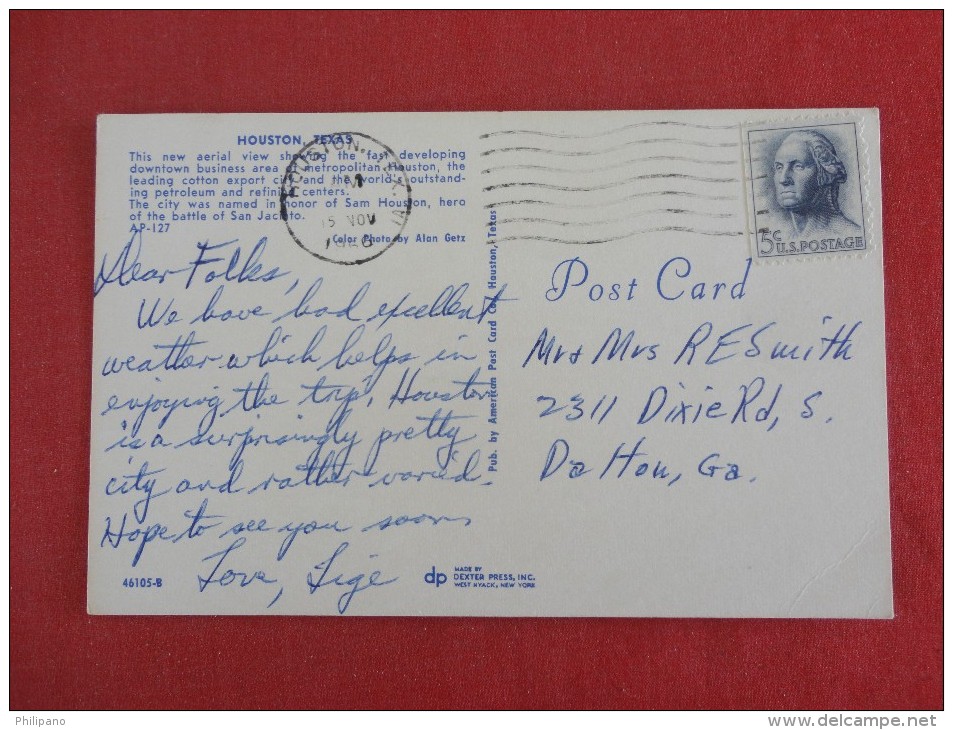 HOUSTON, TEXAS
This new aerial view showing the fast developing
downtown business area of metropolitan Houston, the
leading cotton export city and the world's outstand-
ing petroleum and refining centers.
The city was named in honor of Sam Houston, hero
of the battle of San Jacinto.
AP-127
Color Photo by Alan Getz
Dear Folks,
We have had excellent
weather which helps in
enjoying the trip. Houston
is a surprisingly pretty
city and rather varied.
Hope to see you soon,
Love, Lige
46105-B
dp
MADE BY
DEXTER PRESS, INC.
WEST NYACK, NEW YORK
Pub. by American Post Card Co., Houston, Texas
HOUSTON, TEXAS
15 NOV
5c U.S. POSTAGE
Post Card
Mr & Mrs R E Smith
2311 Dixie Rd, S.
Dalton, Ga.
Philipano
www.delcampe.net